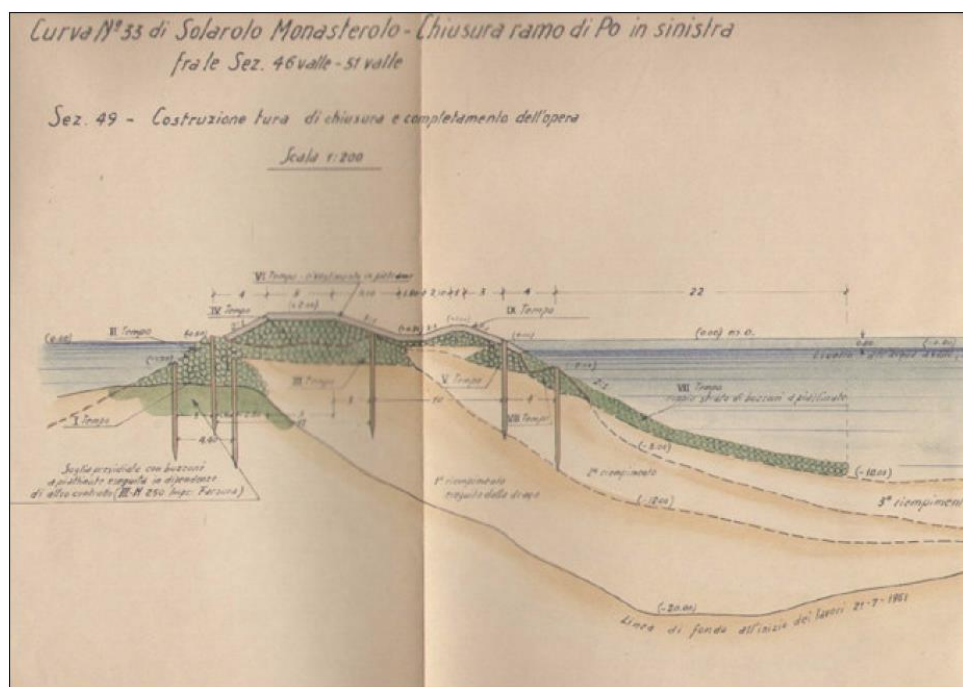 Curva Nº 33 di Solarolo Monasterolo - Chiusura ramo di Po in sinistra
fra le Sez. 46 valle - 51 valle
Sez. 49 - Costruzione tura di chiusura e completamento dell'opera
Scala 1:200
VI Tempo - rivestimento in pietrame
4
3
4
22
IV Tempo
IX Tempo
II Tempo
(0.00)
(0.00) m.o.
(+2.00)
0.80
III Tempo
V Tempo
VII Tempo
doppio strato di buzzoni a piattinate
I Tempo
VIII Tempo
3
10
4
4.60
(-5.00)
(-10.00)
Soglia presidiata con buzzoni
eseguita in dipendenza
di altro contratto (III-N 250 Impr. Farsura)
1º riempimento
eseguito dalla draga
2º riempimento
3º riempiment
(-12.00)
(-20.00)
Linea di fondo all'inizio dei lavori 21-7-